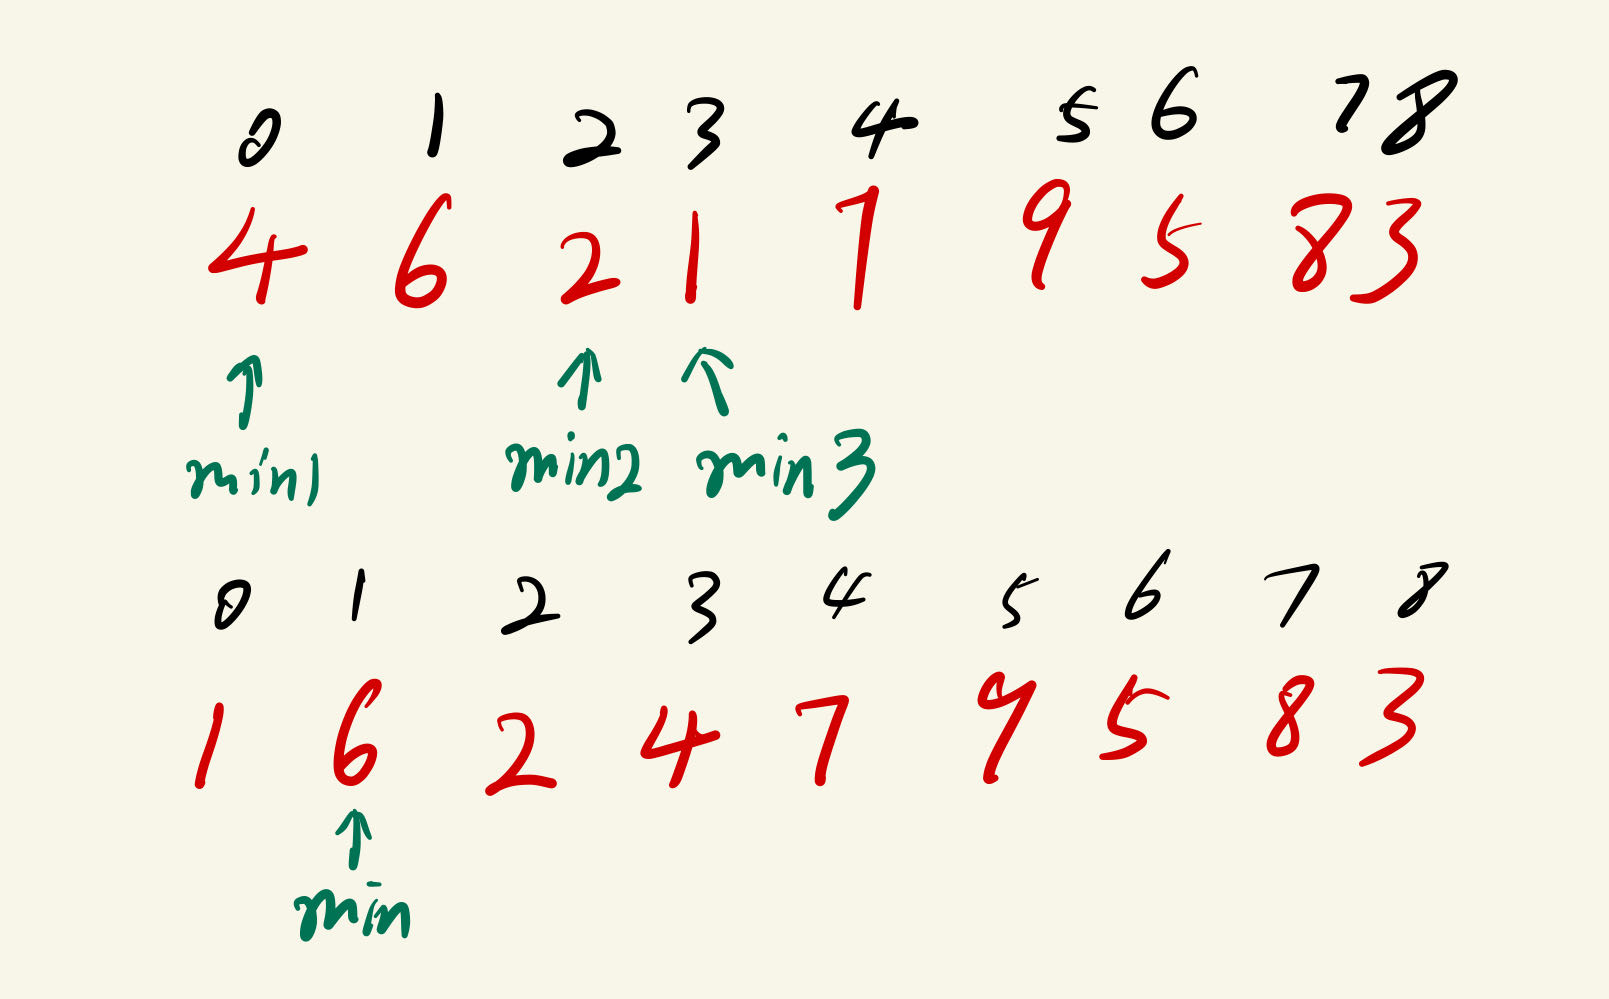 0 1 2 3 4 5 6 7 8
4 6 2 1 7 9 5 8 3
min1 min2 min3
0 1 2 3 4 5 6 7 8
1 6 2 4 7 9 5 8 3
min